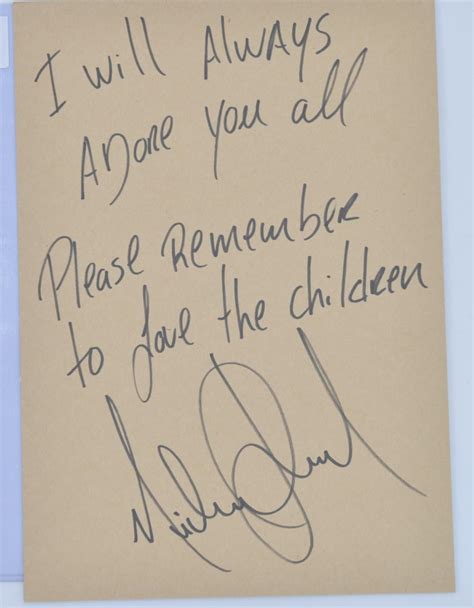 I will Always
Adore you all
Please Remember
to Love the children